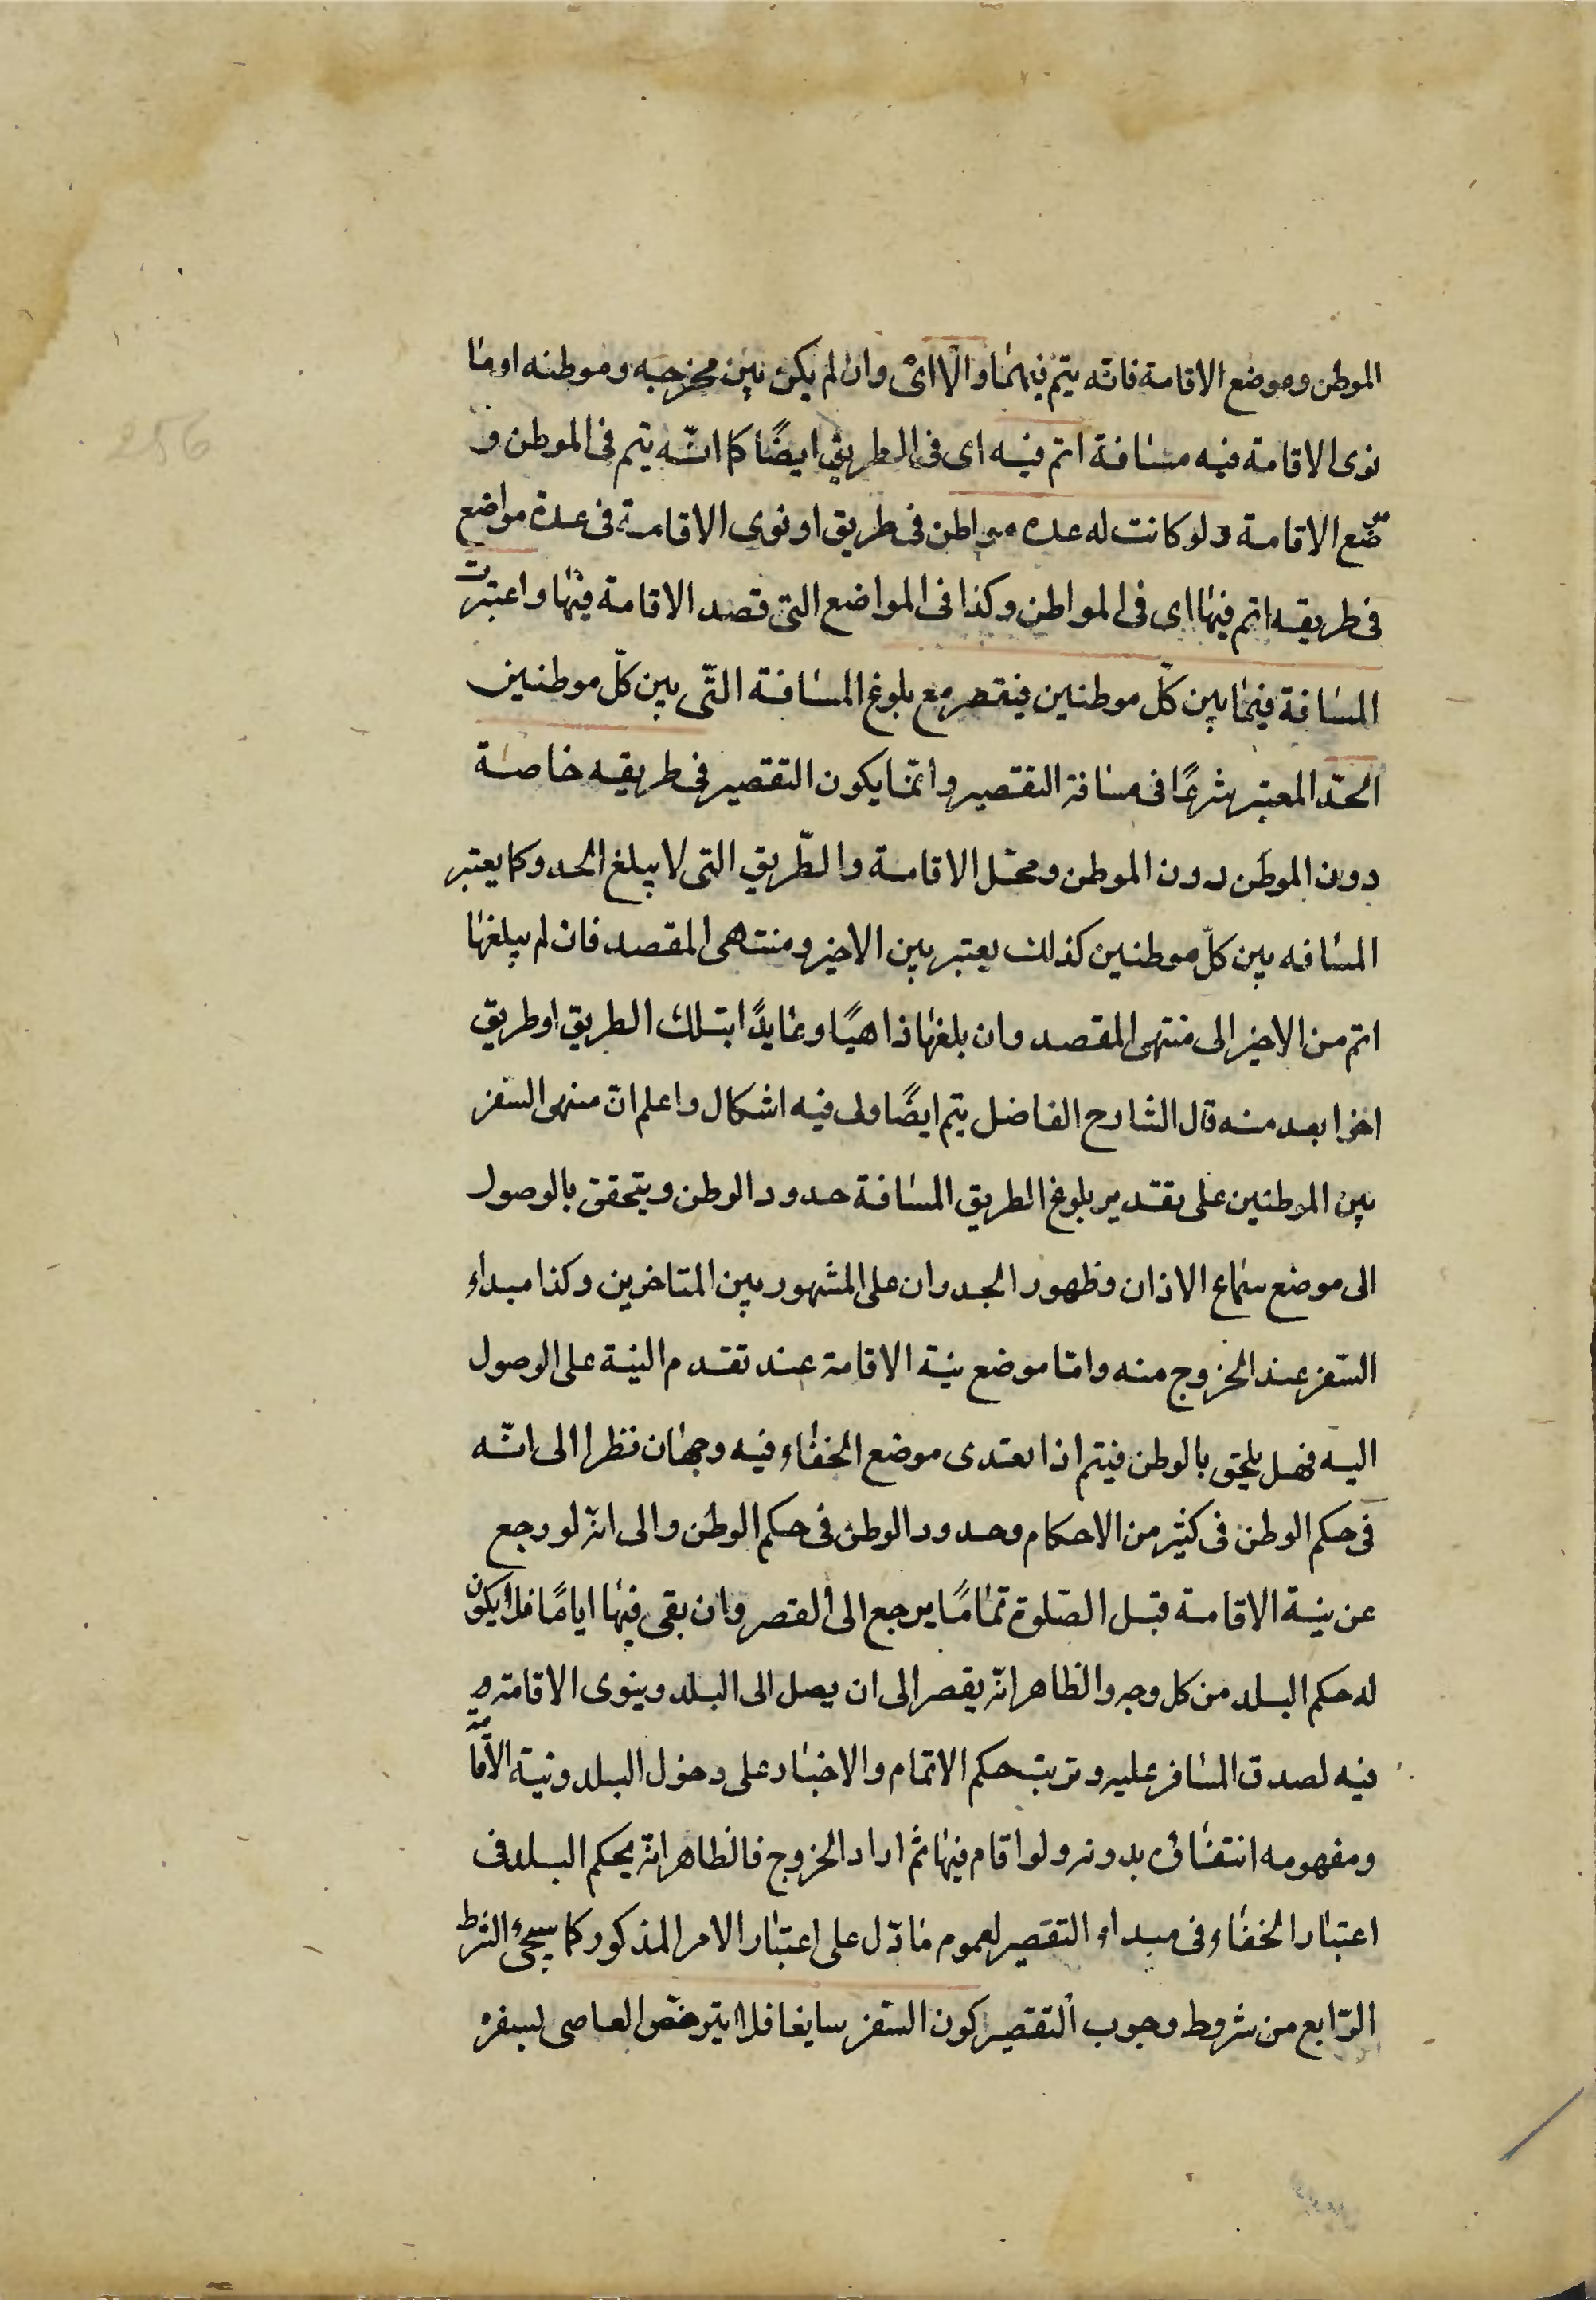 الموطن وموضع الاقامة فانّه يتم فيهما والّا اىْ وان لم يكن بين مخرجه وموطنه او ما
نوى الاقامة فيه مسافة اتم فيه اى فى الطريق ايضًا كما انّه يتم فى الموطن و
ضع الاقامة ولو كانت له عدة مواطن فى طريق او نوى الاقامة فى عدة مواضع
فى طريقه اتم فيها اى فى المواطن وكذا فى المواضع التى قصد الاقامة فيها واعتبرت
المسافة فيما بين كلّ موطنين فيقصر مع بلوغ المسافة التّى بين كلّ موطنين
الحدّ المعتبر شرعًا فى مسافة التقصير وانّما يكون التقصير فى طريقه خاصة
دون الموطن دون الموطن ومحّل الاقامة والطّريق التى لا يبلغ الحد وكما يعتبر
المسافه بين كلّ موطنين كذلك يعتبر بين الاخير ومنتهى المقصد فان لم يبلغها
اتم من الاخير الى منتهى المقصد وان بلغها ذاهبًا وعايدًا بتلك الطريق او طريق
اخر ابعد منه قال الشارح الفاضل يتم ايضًا ولى فيه اشكال واعلم انّ منتهى السفر
بين الموطنين على تقدير بلوغ الطريق المسافة حدود الوطن ويتحقق بالوصول
الى موضع سماع الاذان وظهور الجدران على المشهور بين المتاخرين وكذا مبداء
السّفر عند الخروج منه وامّا موضع نيّة الاقامة عند تقدم النية على الوصول
اليه فهل يلحق بالوطن فيتم اذا تعدى موضع الخفاء فيه وجهان نظرا الى انّه
فى حكم الوطن فى كثير من الاحكام وحدود الوطن فى حكم الوطن والى انّه لو رجع
عن نية الاقامة قبل الصّلوة تمامًا يرجع الى القصر وان بقى فيها ايامًا فلا يكون
له حكم البلد من كل وجه والظاهر انّه يقصر الى ان يصل الى البلد وينوى الاقامة و
فيه لصدق المسافر عليه وترتب حكم الاتمام والاخبار على دخول البلد ونية الاقامة
ومفهومه انتفاؤه بدونه ولو اقام فيها ثم اراد الخروج فالظاهر انّه بحكم البلد فى
اعتبار الخفاء فى مبداء التقصير لعموم ما دّل على اعتبار الامر المذكور كما سيجئ الشرط
الرّابع من شروط وجوب التقصير كون السّفر سايغا فلا يترخّص العاصى لسفره